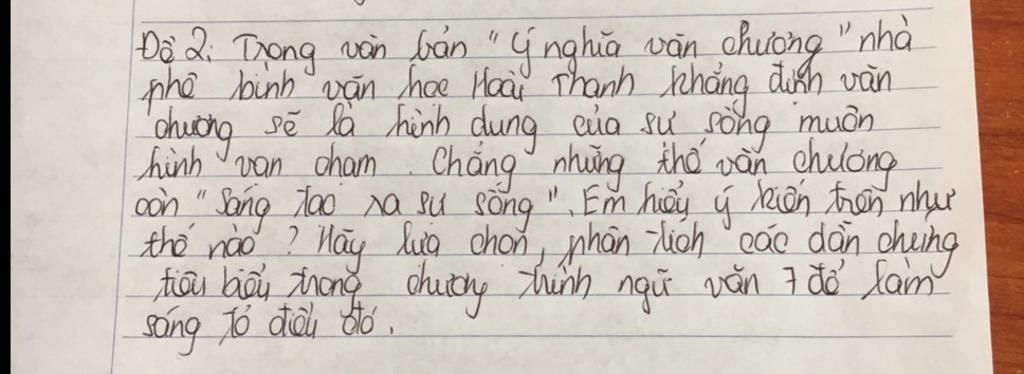 Đề 2: Trong văn bản "Ý nghĩa văn chương" nhà
phê bình văn học Hoài Thanh khẳng định văn
chương sẽ là hình dung của sự sống muôn
hình vạn chạm. Chẳng những thế văn chương
còn "sáng tạo ra sự sống". Em hiểu ý kiến trên như
thế nào? Hãy lựa chọn, phân tích các dẫn chứng
tiêu biểu trong chương trình ngữ văn 7 để làm
sáng tỏ điều đó.